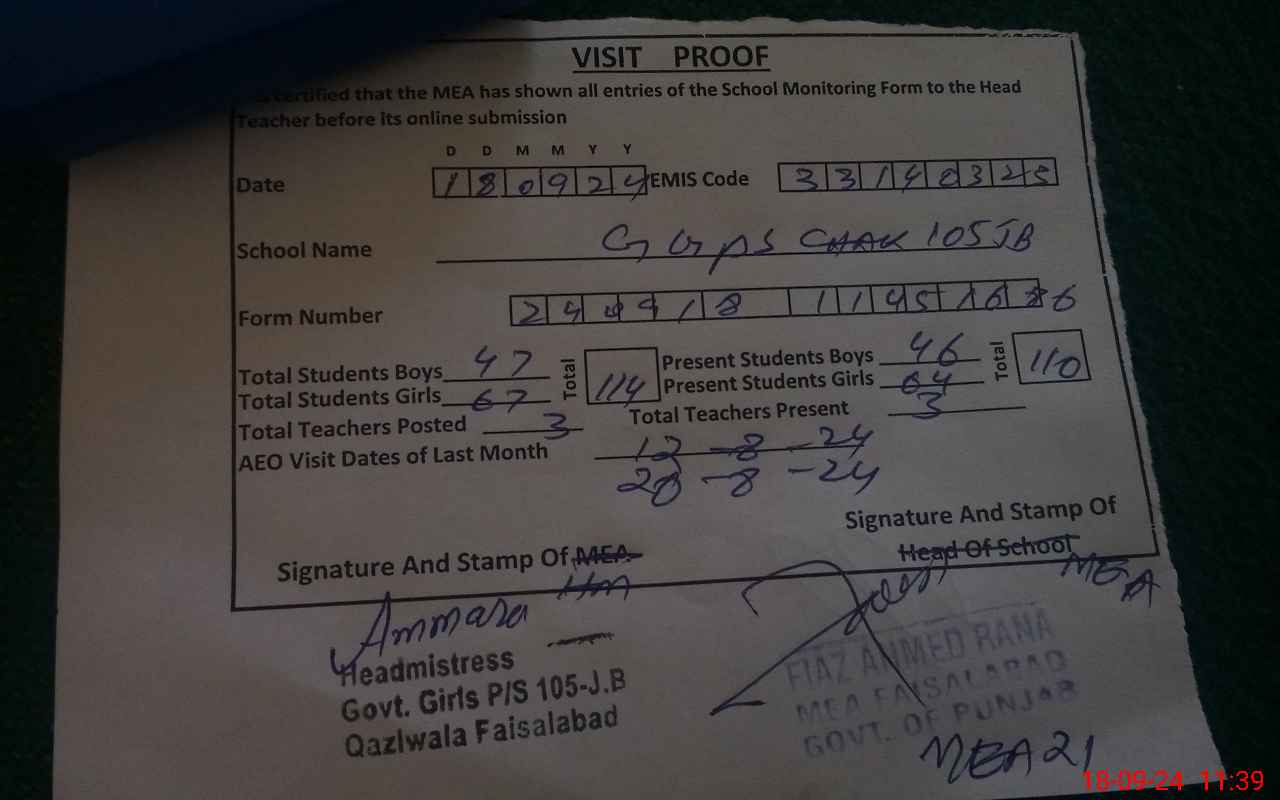 VISIT PROOF
certified that the MEA has shown all entries of the School Monitoring Form to the Head
Teacher before its online submission
D D M M Y Y
Date 180924 EMIS Code 33140325
School Name GGPS CHAK 105JB
Form Number
Total Students Boys 47 Total 114 Present Students Boys 46 Total 110
Total Students Girls 67 Present Students Girls 64
Total Teachers Posted 3 Total Teachers Present 3
AEO Visit Dates of Last Month 12-8-24
28-8-24
Signature And Stamp Of MEA Signature And Stamp Of
Head Of School
Hm MEA
Ammara
Headmistress
Govt. Girls P/S 105-J.B
Qaziwala Faisalabad
FIAZ AHMED RANA
MEA FAISALABAD
GOVT. OF PUNJAB
MEA 21
18-09-24 11:39